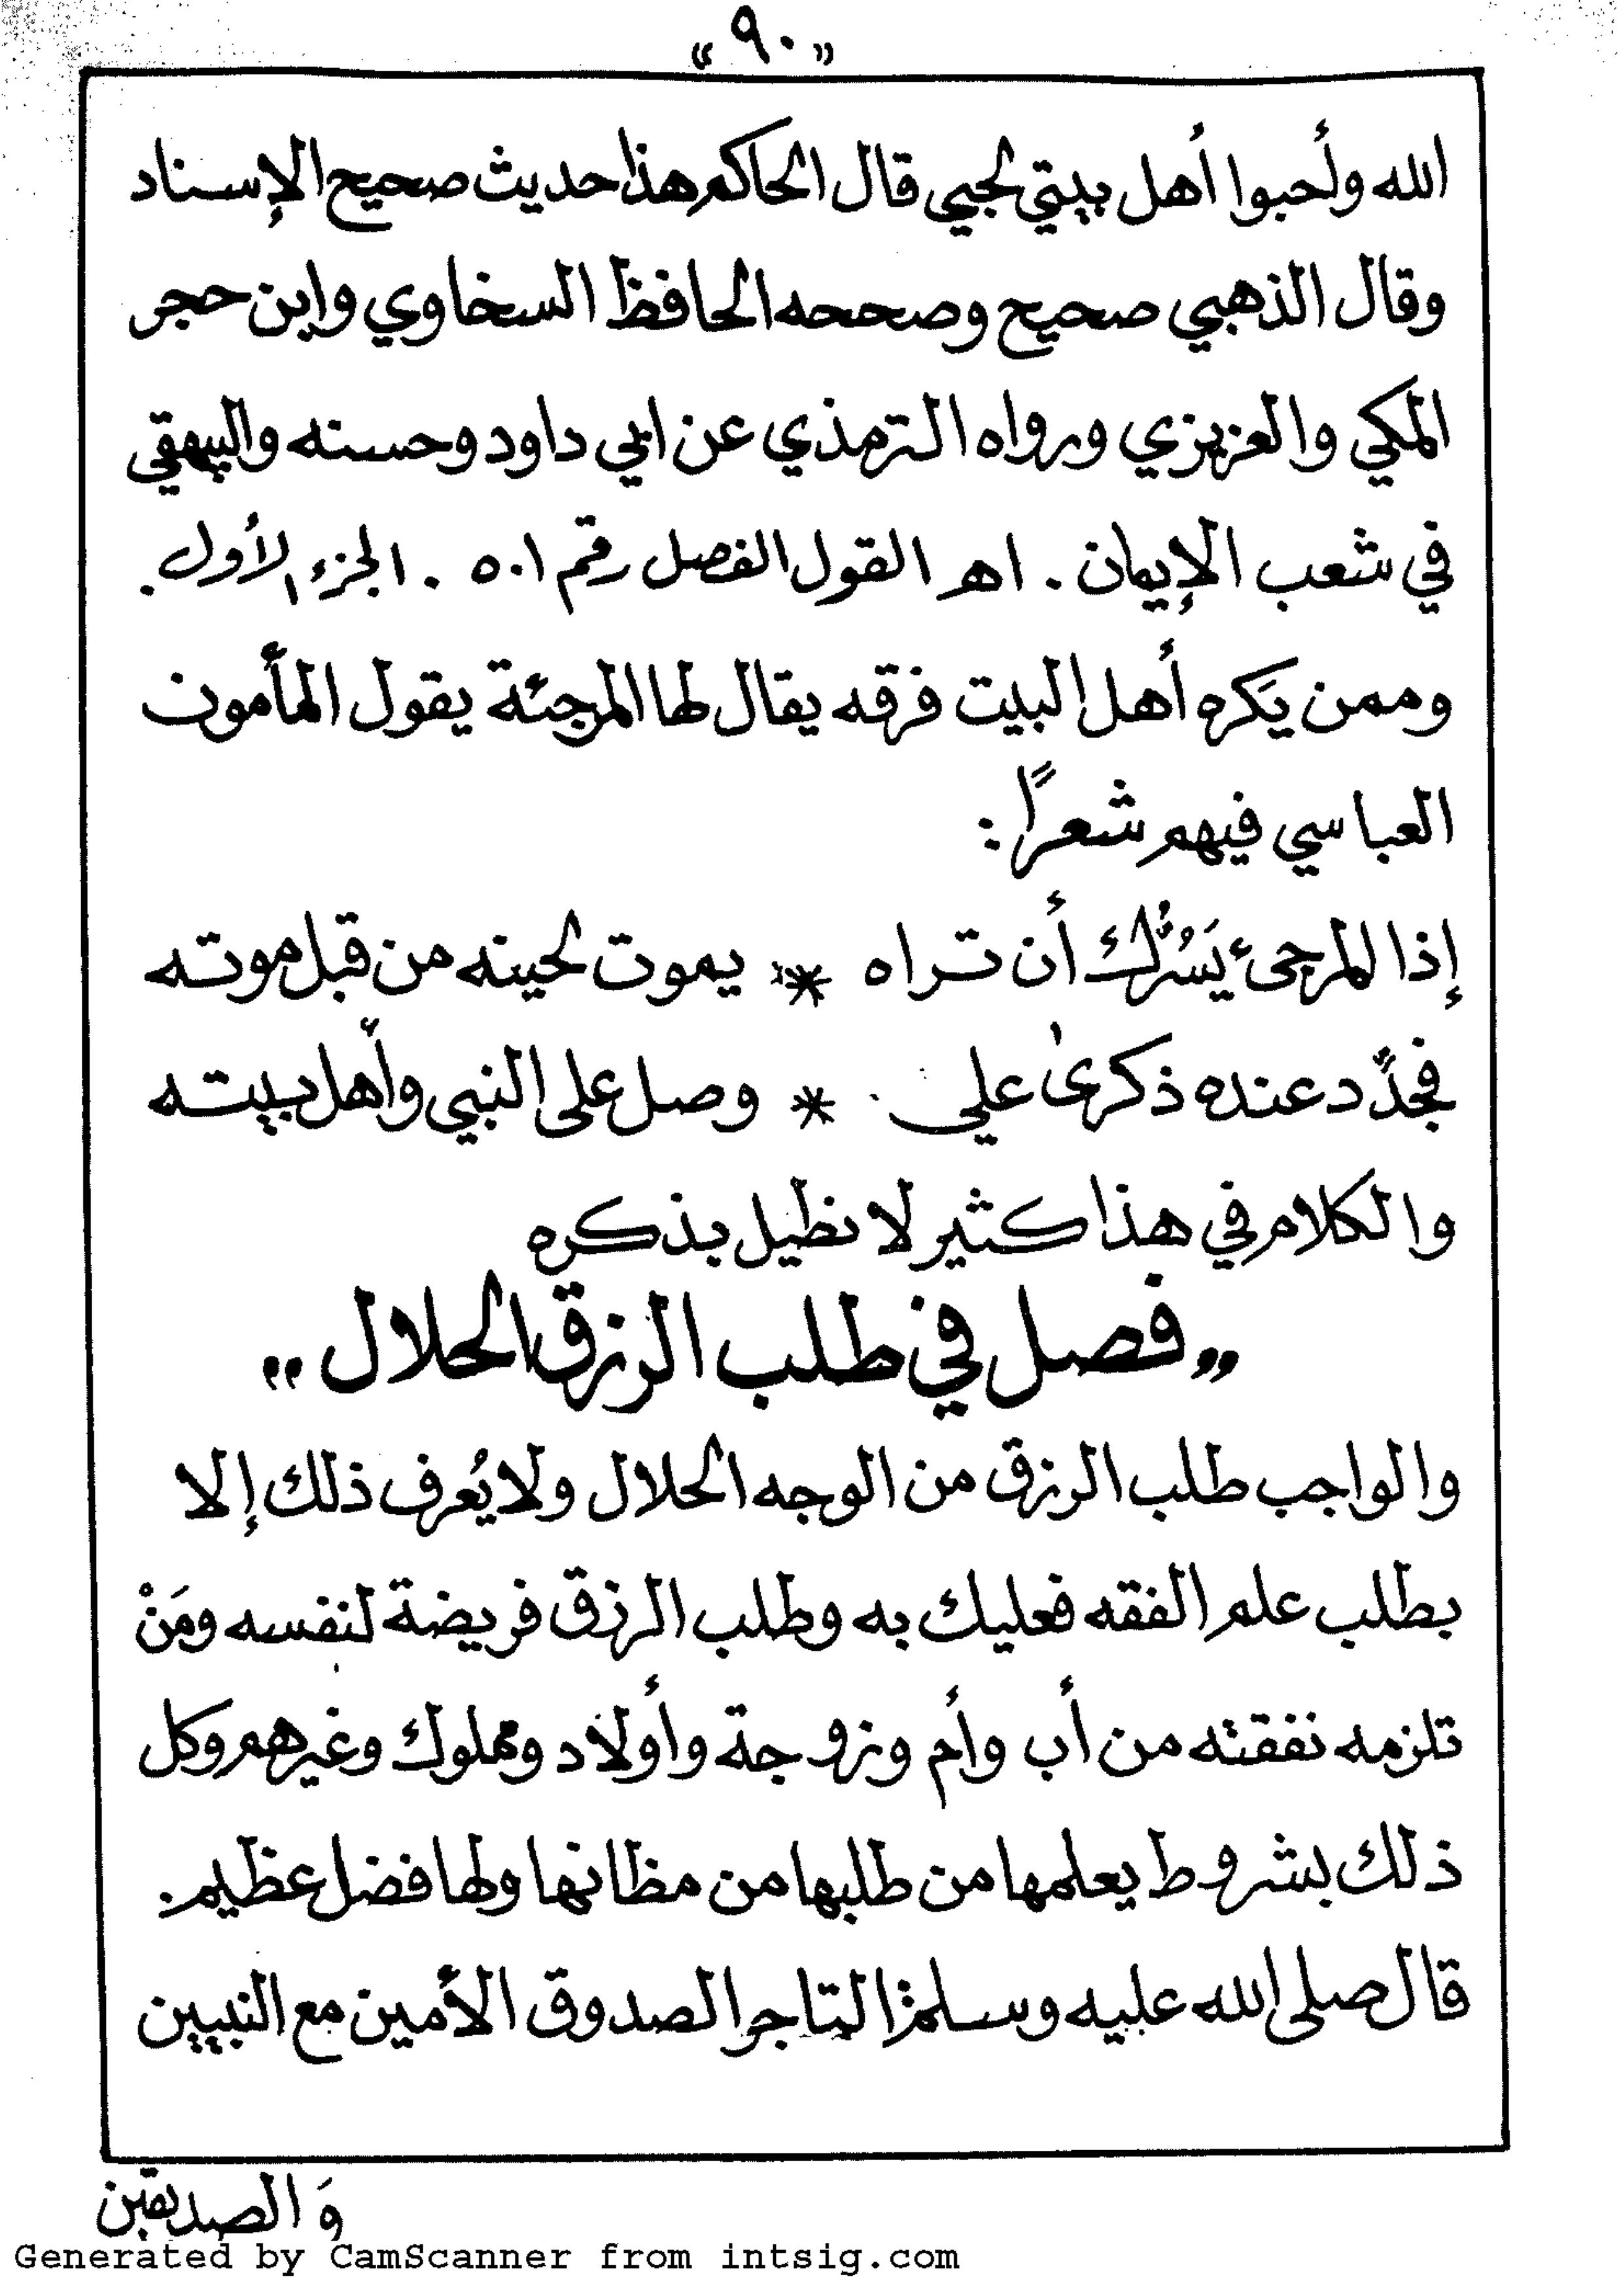 «٩٠»
الله وأحبوا أهل بيتي لحبي قال الحاكم هذا حديث صحيح الإسناد
وقال الذهبي صحيح وصححه الحافظ السخاوي وابن حجر
المكي والعزيزي ورواه الترمذي عن ابي داود وحسنه والبيهقي
في شعب الإيمان . اهـ القول الفصل رقم ٥٠١ . الجزء الأول .
وممن يَكره أهل البيت فرقه يقال لها المرجئة يقول المأمون
العباسي فيهم شعرًا :
إذا المرجىء يَسُرُّك أن تراه * يموت لحينه من قبل موته
فجدِّد عنده ذكرىٰ علي * وصل على النبي وأهل بيته
والكلام في هذا كثير لا نطيل بذكره
,, فصل في طلب الرزق الحلال ,,
والواجب طلب الرزق من الوجه الحلال ولا يُعرف ذلك إلا
بطلب علم الفقه فعليك به وطلب الرزق فريضة لنفسه ومَنْ
تلزمه نفقته من أب وأم وزوجة وأولاد ومملوك وغيرهم وكل
ذلك بشروط يعلمها من طلبها من مظانها ولها فضل عظيم .
قال صلى الله عليه وسلم: التاجر الصدوق الأمين مع النبيين
وَالصديقين
Generated by CamScanner from intsig.com